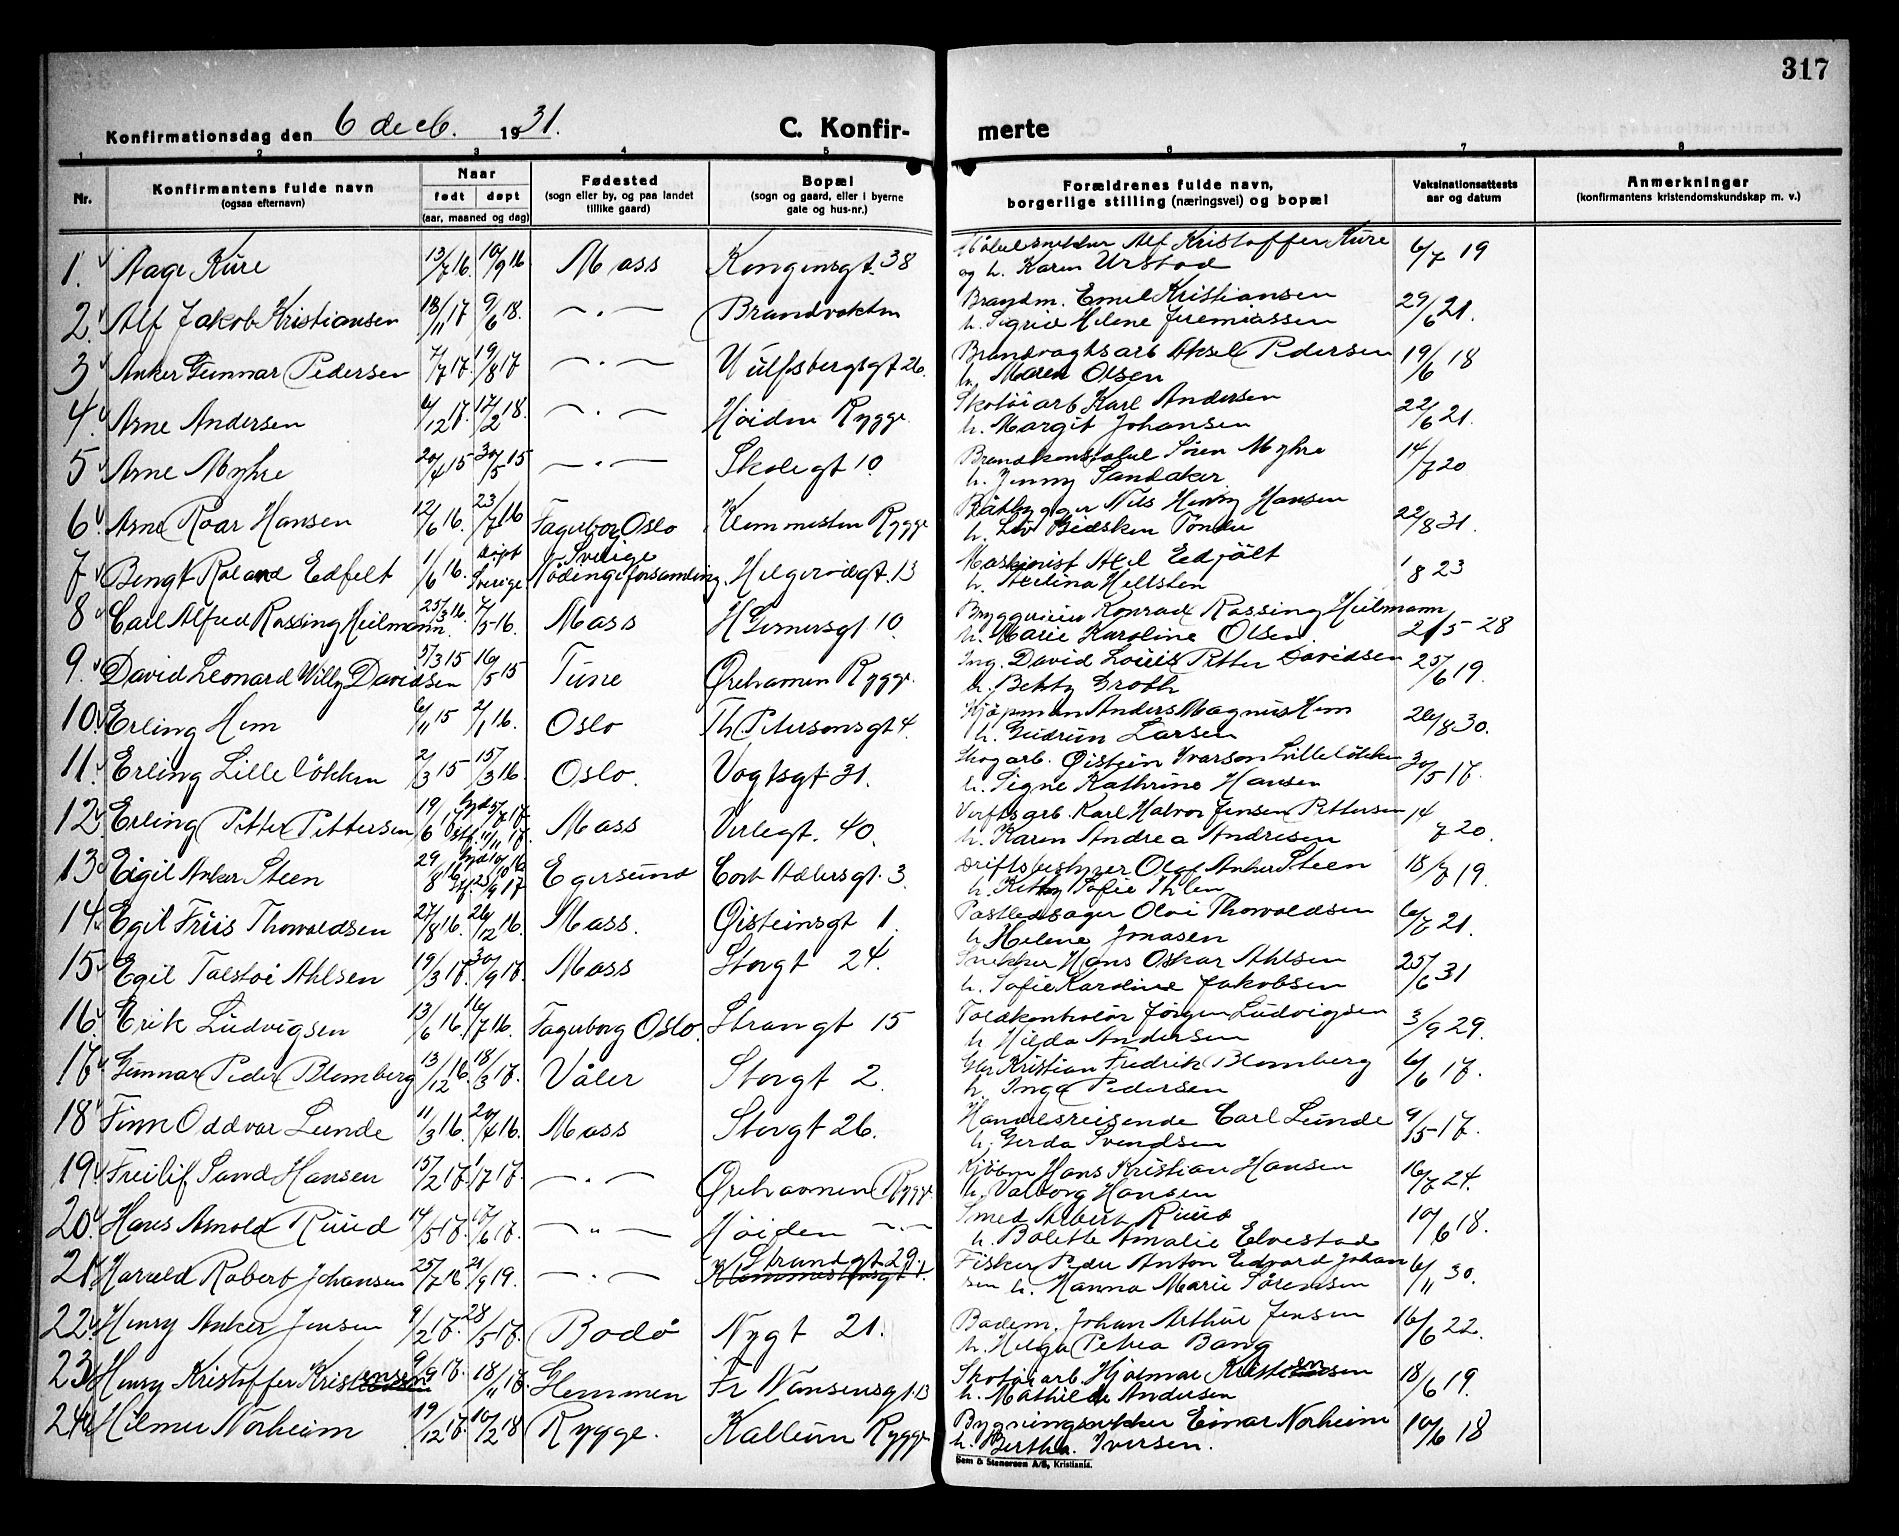 317
Konfirmationsdag den 6 decb. 1931.
C. Konfirmerte
1 2 3 4 5 6 7 8
Nr.
Konfirmantens fulde navn
(ogsaa efternavn)
Naar
født døpt
(aar, maaned og dag)
Fødested
(sogn eller by, og paa landet
tillike gaard)
Bopæl
(sogn og gaard, eller i byerne
gate og hus-nr.)
Forældrenes fulde navn,
borgerlige stilling (næringsvei) og bopæl
Vaksinationsattests
aar og datum
Anmerkninger
(konfirmantens kristendomskundskap m. v.)
1. Aage Kure 13/7 16. 10/9 16 Moss Kongensgt. 38 Alf Kristoffer Kure 6/7 19
og h. Karen Urstad
2. Alf Jakob Kristiansen 18/11 17 9/6 18. — . — Brandvakten Brandm. Emil Kristiansen 29/6 21.
h. Sigrid Helene Jeremiassen
3 Anker Gunnar Pedersen 7/7 17. 19/8 17 — . — Wulfsbergsgt 26. Brandvagtsarb Aksel Pedersen 19/6 18
h. Maren Olsen
4. Arne Andersen 6/12 17. 17/2 18. — . — Høiden Rygge Skotøiarb Karl Andersen 22/6 21.
h. Margit Johansen
5 Arne Myhre 20/4 15 30/5 15 — . — Skolegt 10. Brandkonstabel Søren Myhre 14/7 20
h. Jenny Sandaker
6. Arne Roar Hansen 12/6 16. 23/7 16 Fagerborg Oslo Klommesten Rygge Båtbygger Nils Henry Hansen 22/8 31.
h. Liv Tønder
7 Bengt Roland Edfelt 1/6 16. døpt Sverige Sverige Nødinge forsamling. Helgerødgt. 13 Maskinist Axel Edfält 1/8 23
h. Hellsten
8 Carl Alfred Rossing Heilmann. 25/3 16. 7/5-16. Moss H Gernersgt 10. Konrad Rossing Heilmann 21/5-28
h. Marie Karoline Olsen.
9. David Leonard Willy Davidsen 5/3 15 16/5 15 Tune Ørehavnen Rygge. Ing. David Louis Petter Davidsen 25/6 19.
h. Betsy Groth
10. Erling Hem 6/11 15 2/1 16. Oslo Th. Petersonsgt 4. Kjøpman Anders Magnus Hem 26/8 30.
h. Gudrun Larsen
11. Erling Lilleløkken 2/3 15 15/3 16. Oslo. Vogtsgt 31. Skogarb. Øistein Ivarson Lilleløkken 30/5 17.
h. Signe Kathrine Hansen
12. Erling Petter Pettersen 19/6 17 5/7 17. 11/11 17. Moss Verlegt. 40. Verftsarb. Karl Halvor Jensen Pettersen 14/7 20.
h. Karen Andrea Andresen
13. Eigil Anker Steen 29/8 16 10/10 16 23/9 17 Egersund Cort Adelersgt. 3. Driftsbestyrer Olaf Anker Steen 18/7 19.
h. Kitty Sofie Ihlen
14. Egil Friis Thorvaldsen 27/8 16. 26/12 16. Moss. Øisteinsgt 1. Postledsager Olai Thorvaldsen 6/7 21.
h. Helene Jonasen
15. Egil Tolstoi Ahlsen 19/3 17. 30/9 17. Moss Storgt 24. Snekker Hans Oskar Ahlsen 25/6 31
h. Sofie Karoline Jakobsen
16. Erik Ludvigsen 13/6 16. 16/7 16. Fagerborg Oslo. Strangt 15 Toldkontrolør Jørgen Ludvigsen 3/9 29.
h. Hilda Andersen
17. Gunnar Peder Blomberg 13/12 16. 18/3 17. Våler Storgt 2. Kristian Fredrik Blomberg 6/6 17.
h. Inga Pedersen
18. Finn Oddvar Lunde 11/3 16. 20/4 16. Moss Storgt 26. Handelsreisende Carl Lunde 9/5-17.
h. Gerda Svendsen
19. Freilif Sand Hansen 15/2 17. 1/7 17. — . — Ørehavnen Rygge. Kjøpm Hans Kristian Hansen 16/7 24.
h. Valborg Hansen
20. Hans Arnold Ruud 14/5 17. 17/6 17. — „ — Høiden — . — Smed Albert Ruud 10/6 18.
h. Bolette Amalie Elvestad
21. Harald Robert Johansen 25/7 16 21/9 19. — . — Strandgt 29. Fisker Peder Anton Edvard Johan 6/11 30.
sen h. Hanna Marie Sørensen
22. Henry Anker Jensen 9/2 17. 28/5 17. Bodø Nygt 21. Badem. Johan Arthur Jensen 16/6 22.
h. Helga Petrea Bang
23. Henry Kristoffer Kristensen 9/9 17. 18/11 17. Glemmen Fr Nansensgt. 13 Skotøiarb. Hjalmar Kristensen 18/6 19.
h. Mathilde Andersen
24. Hilmer Norheim 19/12 17. 10/2 18 Rygge. Kallum Rygge Bygningsnekker Einar Norheim 10/6 18
h. Berthe Iversen.
Sem & Stenersen A/S, Kristiania.